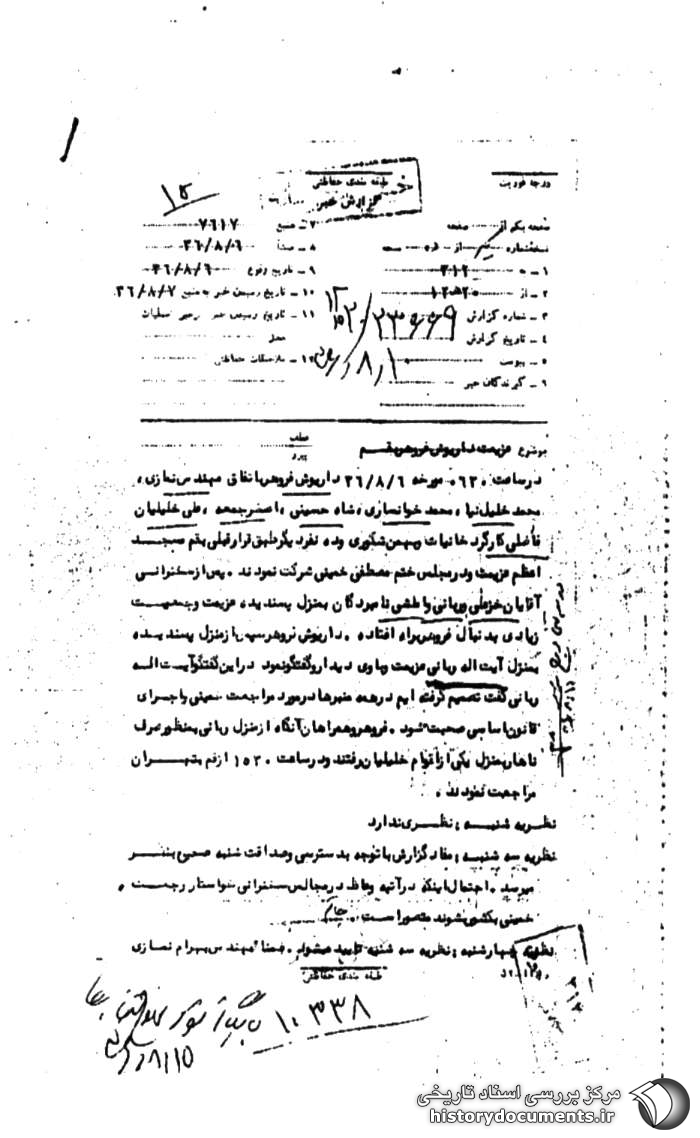 درجه فوریت
طبقه بندی حفاظتی
گزارش خبر
۱۵
صفحه یکم از صفحه
نسخه شماره از نسخه
۱ ـ به ۳۱۲
۲ ـ از ۱۲ ﻫ ۲۰
۳ ـ شماره گزارش
۴ ـ تاریخ گزارش
۵ ـ پیوست
۶ ـ گیرندگان خبر
۷ ـ منبع ۷۶۱۷
۸ ـ منشأ ۳۶/۸/۶
۹ ـ تاریخ وقوع ۳۶/۸/۶
۱۰ ـ تاریخ رسیدن خبر به منبع ۳۶/۸/۷
۱۱ ـ تاریخ رسیدن خبر به رهبر عملیات
محل
۱۲ ـ ملاحظات حفاظتی
موضوع عزیمت داریوش فروهر بقم
عطف
پیرو
در ساعت ۰۶۳۰ مورخه ۳۶/۸/۶ داریوش فروهر باتفاق مهندس نمازی،
محمد خلیل نیا، محمد خوانساری، شاه حسینی، اصغر جمعه، علی خلیلیان
فاضلی کارگر دخانیات و بهمن شکوری و ده نفر دیگر طبق قرار قبلی بقم مسجد
اعظم عزیمت و در مجلس ختم مصطفی خمینی شرکت نمودند. پس از سخنرانی
آقایان خزعلی و ربانی واعظی نامبردگان بمنزل پسندیده عزیمت و جمعیت
زیادی بدنبال فروهر براه افتاده. داریوش فروهر سپس از منزل پسندیده
بمنزل آیت اله ربانی عزیمت و با وی دیدار و گفتگو نمود در این گفتگو آیت اله
ربانی گفت تصمیم گرفته ایم در همه منبرها در مورد مراجعت خمینی و اجرای
قانون اساسی صحبت شود. فروهر و همراهان آنگاه از منزل ربانی بمنظور صرف
ناهار بمنزل یکی از اقوام خلیلیان رفتند و در ساعت ۱۵۳۰ از قم بتهران
مراجعت نمودند.
نظریه شنبه: نظری ندارد
نظریه سه شنبه: مفاد گزارش با توجه بدسترسی و صداقت شنبه صحیح بنظر
میرسد. احتمال اینکه در آتیه وعاظ در مجالس سخنرانی خواستار رجعت
خمینی بکشور شوند متصور است. جاتم
نظریه چهارشنبه: نظریه سه شنبه تایید میشود. ضمنا مهندس بهرام نمازی
طبقه بندی حفاظتی
۳۱۲
۱۰۳۳۸
۸/۱۵
مرکز بررسی اسناد تاریخی
historydocuments.ir